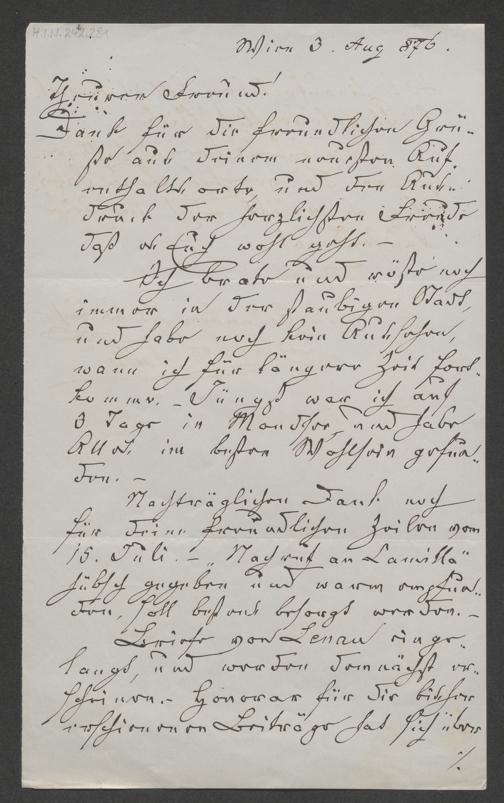 H.I.N. 242.281
Wien 3. Aug 876.
Theurer Freund!
Dank für die freundlichen Grü-
ße aus deinem neuesten Auf
enthaltsorte, und den Aus-
druck der herzlichsten Freude
daß es Euch wohl geht. –
Ich brate und röste noch
immer in der staubigen Stadt,
und habe noch kein Aussehen,
wann ich für längere Zeit fort-
komme. – Jüngst war ich auf
3 Tage in Mondsee, und habe
Alles im besten Wohlsein gefun-
den. –
Nachträglichen Dank noch
für deine freundlichen Zeilen vom
15. Juli. – „Nachruf an Camilla"
hübsch gegeben und warm empfun-
den, soll bestens besorgt werden. –
Briefe von Lenau einge-
langt, und werden demnächst er-
scheinen. – Honorar für die bisher
erschienenen Beiträge hat sich über
./.